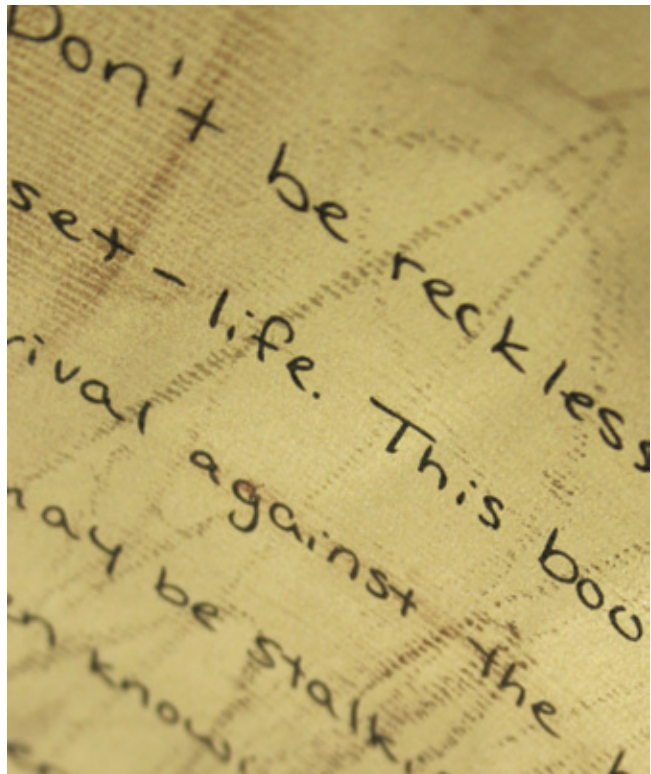 Don't be reckless
set-life. This boo
rival against the
may be stalki
n know